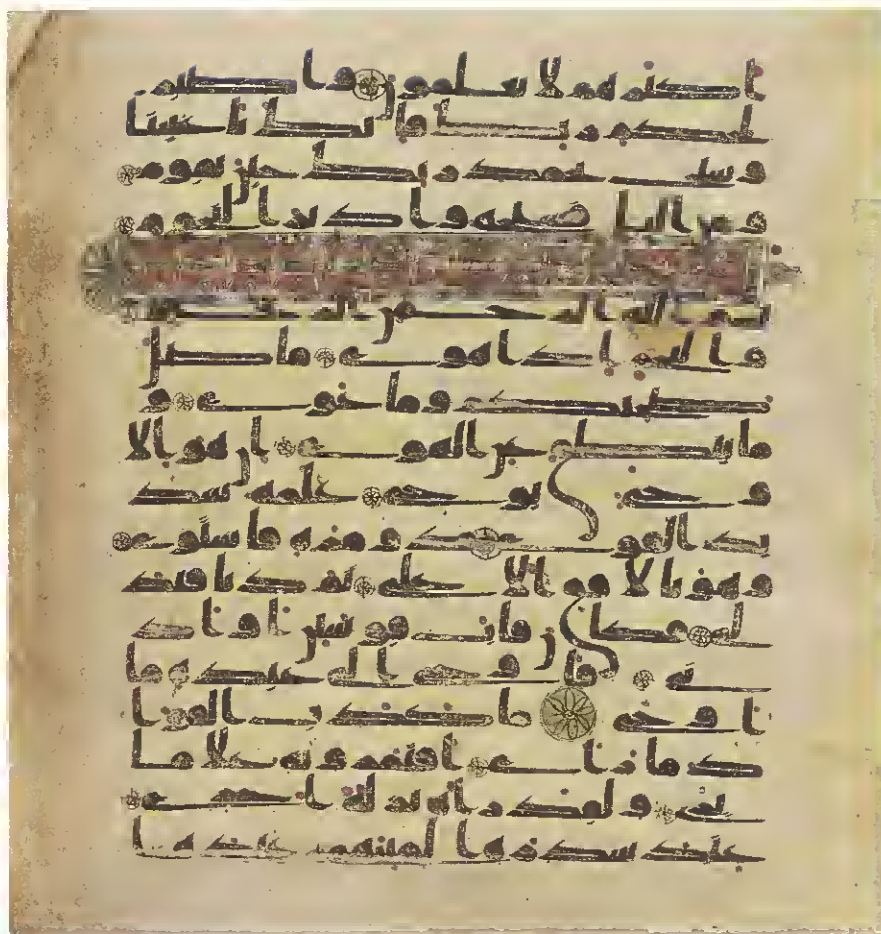 اكثرهم لا يعلمون واصبر
لحكم ربك فانك باعيننا
وسبح بحمد ربك حين تقوم
ومن اليل فسبحه وادبر النجوم
بسم الله الرحمن الرحيم
والنجم اذا هوى ما ضل
صحبكم وما غوى و
ما ينطق عن الهوى ان هو الا
وحى يوحى علمه شد
يد القوى ذو مرة فاستوى
وهو بالافق الاعلى ثم دنا فتد
لى فكان قاب قوسين او اد
نى فاوحى الى عبده ما
اوحى ما كذب الفواد ما
راى افتمرونه على ما
يرى ولقد راه نزلة اخرى
عند سدرة المنتهى عندها